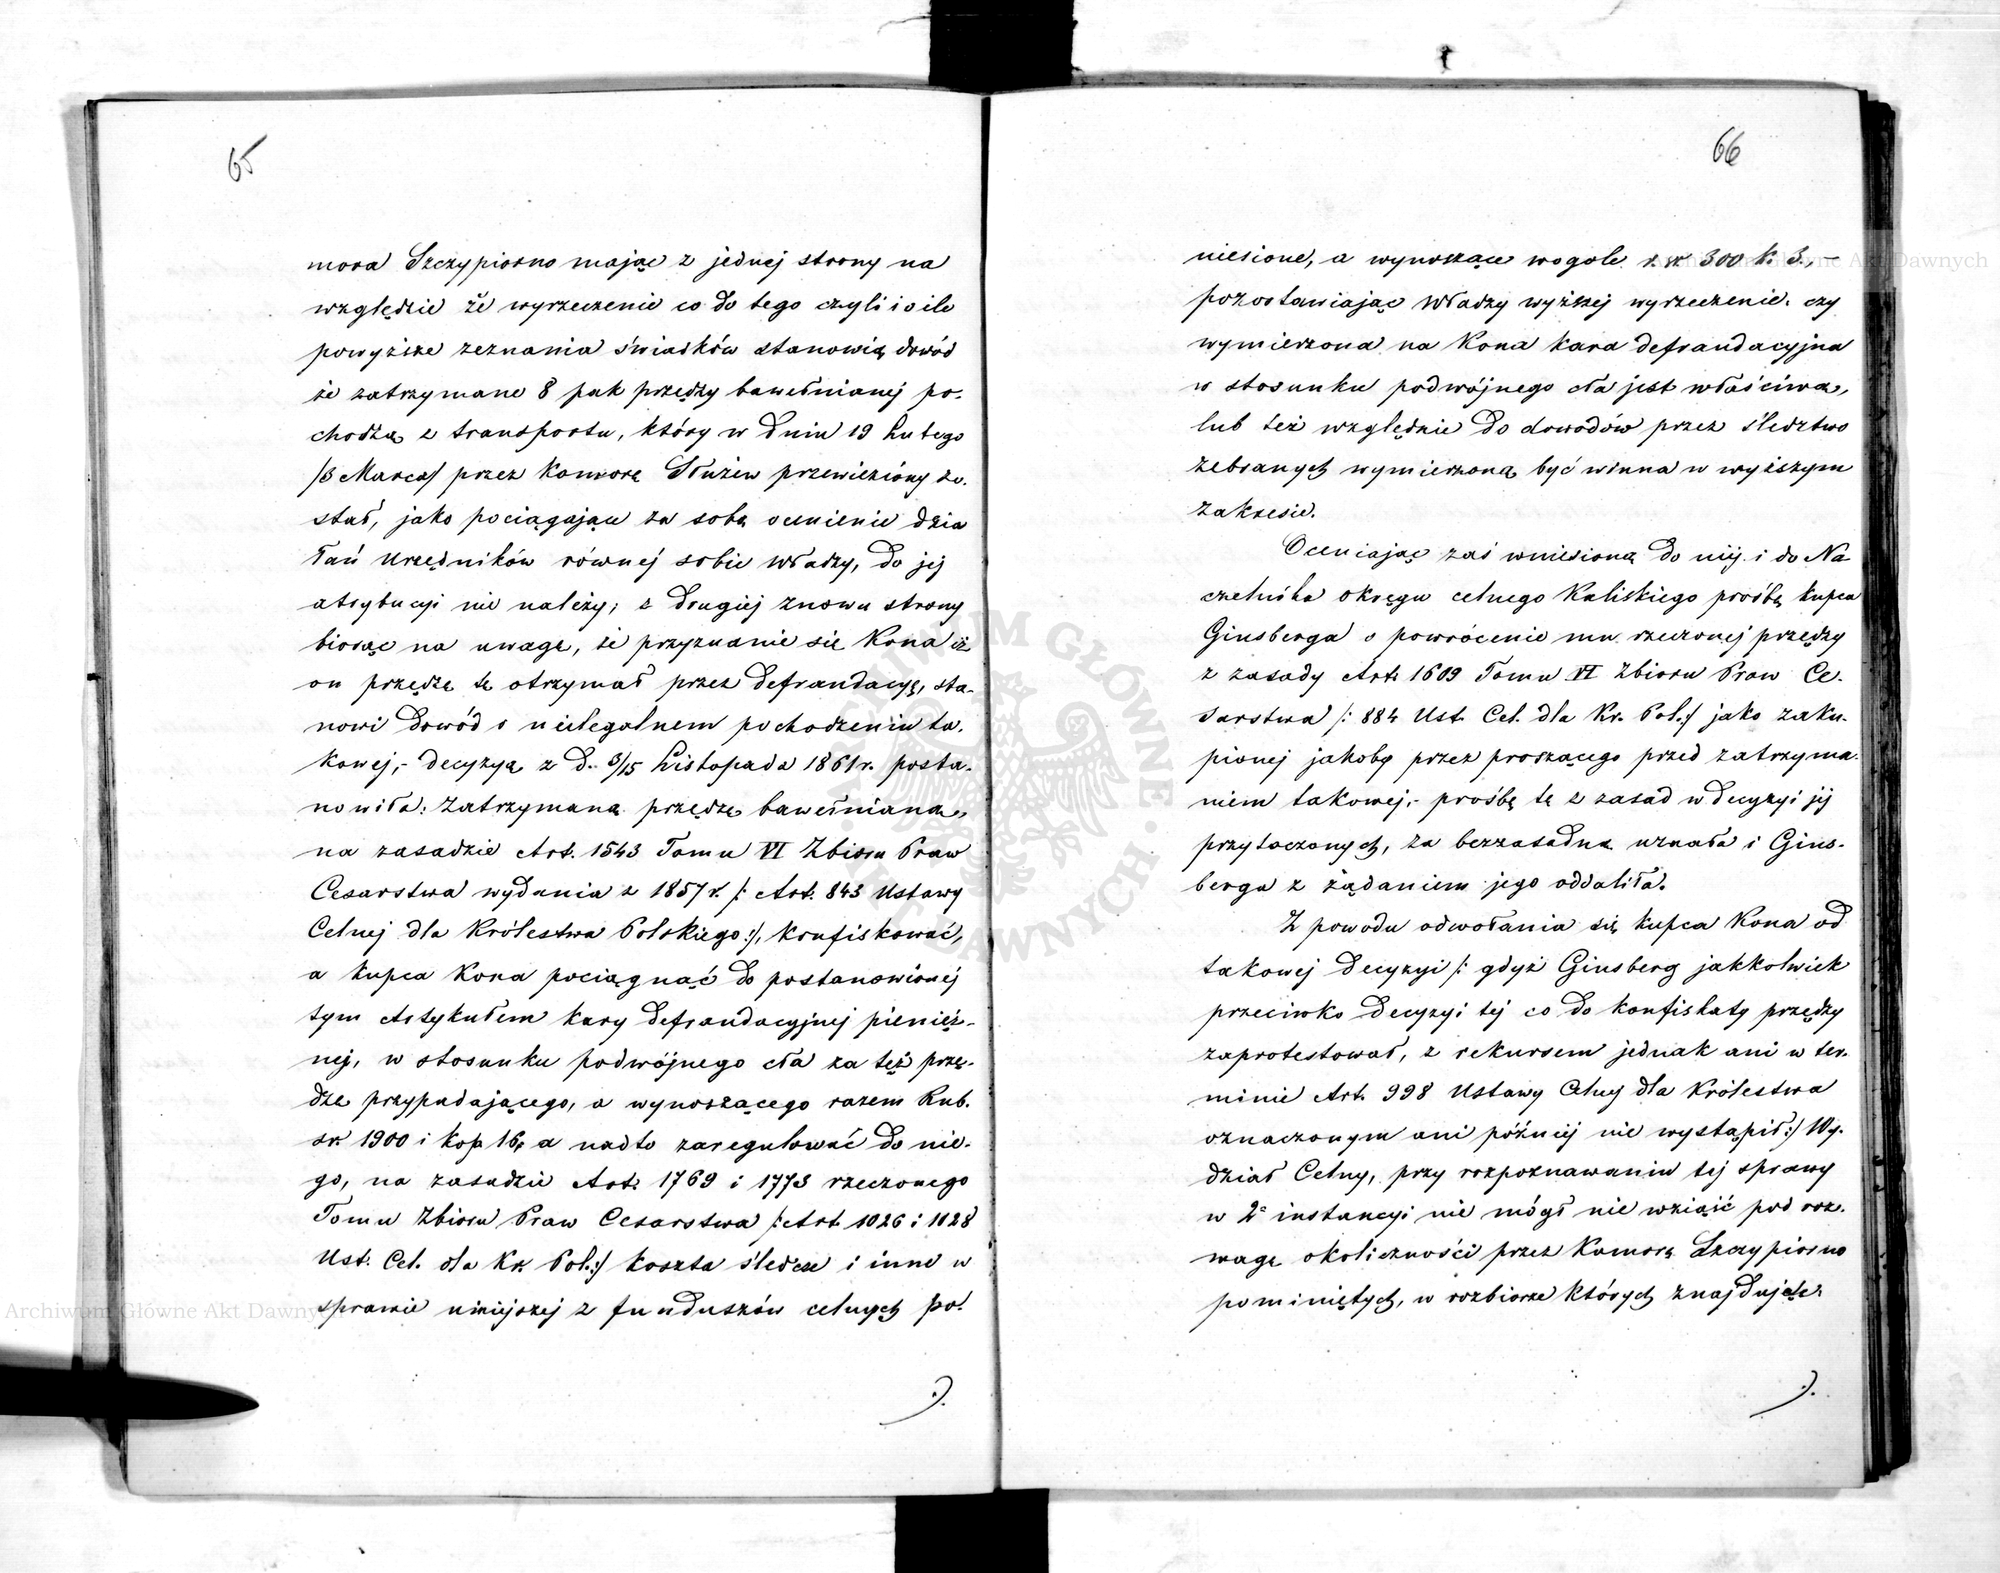 65
mora Szczypiorno mając z jednej strony na
względzie że wyrzeczenie co do tego czyli i o ile
powyższe zeznania świadków stanowią dowód
że zatrzymane 8 pak przędzy bawełnianej po-
chodzą z transportu, który w dniu 19 Lutego
/3 Marca/ przez Komorę Służew przewieziony zo-
stał, jako pociągające za sobą ocenienie dzia
łań Urzędników równej sobie Władzy, do jej
atrybucyi nie należy; z drugiej znowu strony
biorąc na uwagę, że przyznanie się Kona iż
on przędzę tę otrzymał przez defraudacyę, sta-
nowi dowód o nielegalnem pochodzeniu ta-
kowej,- decyzyą z d. 3/15 Listopada 1861 r. posta-
nowiła: zatrzymaną przędzę bawełnianą,
na zasadzie Art. 1543 Tomu VI Zbioru Praw
Cesarstwa wydania z 1857 r. /: Art. 843 Ustawy
Celnej dla Królestwa Polskiego:/, konfiskować,
a kupca Kona pociągnąć do postanowionej
tym Artykułem kary defraudacyjnej pienięż-
nej, w stosunku podwójnego cła za tęż przę-
dzę przypadającego, a wynoszącego razem Rub.
sr. 1900 i kop 16, a nadto zaregulować do nie-
go, na zasadzie Art. 1769 i 1773 rzeczonego
Tomu Zbioru Praw Cesarstwa /: Art. 1026 i 1028
Ust. Cel. dla Kr. Pol.:/ koszta śledcze i inne w
sprawie niniejszej z funduszów celnych po-
66
niesione, a wynoszące wogóle r. sr 300 k. 3.,-
pozostawiając Władzy wyższej wyrzeczenie, czy
wymierzona na Kona kara defraudacyjna
w stosunku podwójnego cła jest właściwą,
lub też względnie do dowodów przez śledztwo
zebranych wymierzoną być winna w wyższym
zakresie.
Oceniając zaś wniesioną do niej i do Na
czelnika Okręgu celnego Kaliskiego prośbę kupca
Ginsberga o powrócenie mu rzeczonej przędzy
z zasady Art. 1609 Tomu VI Zbioru Praw Ce-
sarstwa /: 884 Ust. Cel. dla Kr. Pol.:/ jako zaku-
pionej jakoby przez proszącego przed zatrzyma-
niem takowej,- prośbę tę z zasad w decyzyi jej
przytoczonych, za bezzasadną uznała i Gins-
berga z żądaniem jego oddaliła.
Z powodu odwołania się kupca Kona od
takowej decyzyi /: gdyż Ginsberg jakkolwiek
przeciwko decyzyi tej co do konfiskaty przędzy
zaprotestował, z rekursem jednak ani w ter-
minie Art. 998 Ustawy Celnej dla Królestwa
oznaczonym ani później nie wystąpił:/ Wy-
dział Celny, przy rozpoznawaniu tej sprawy
w 2ej instancyi nie mógł nie wziąść pod roz-
wagę okoliczności przez Komorę Szczypiorno
pominiętych, w rozbiorze których znajduje:
Archiwum Główne Akt Dawnych
Archiwum Główne Akt Dawnych
ARCHIWUM GŁÓWNE AKT DAWNYCH